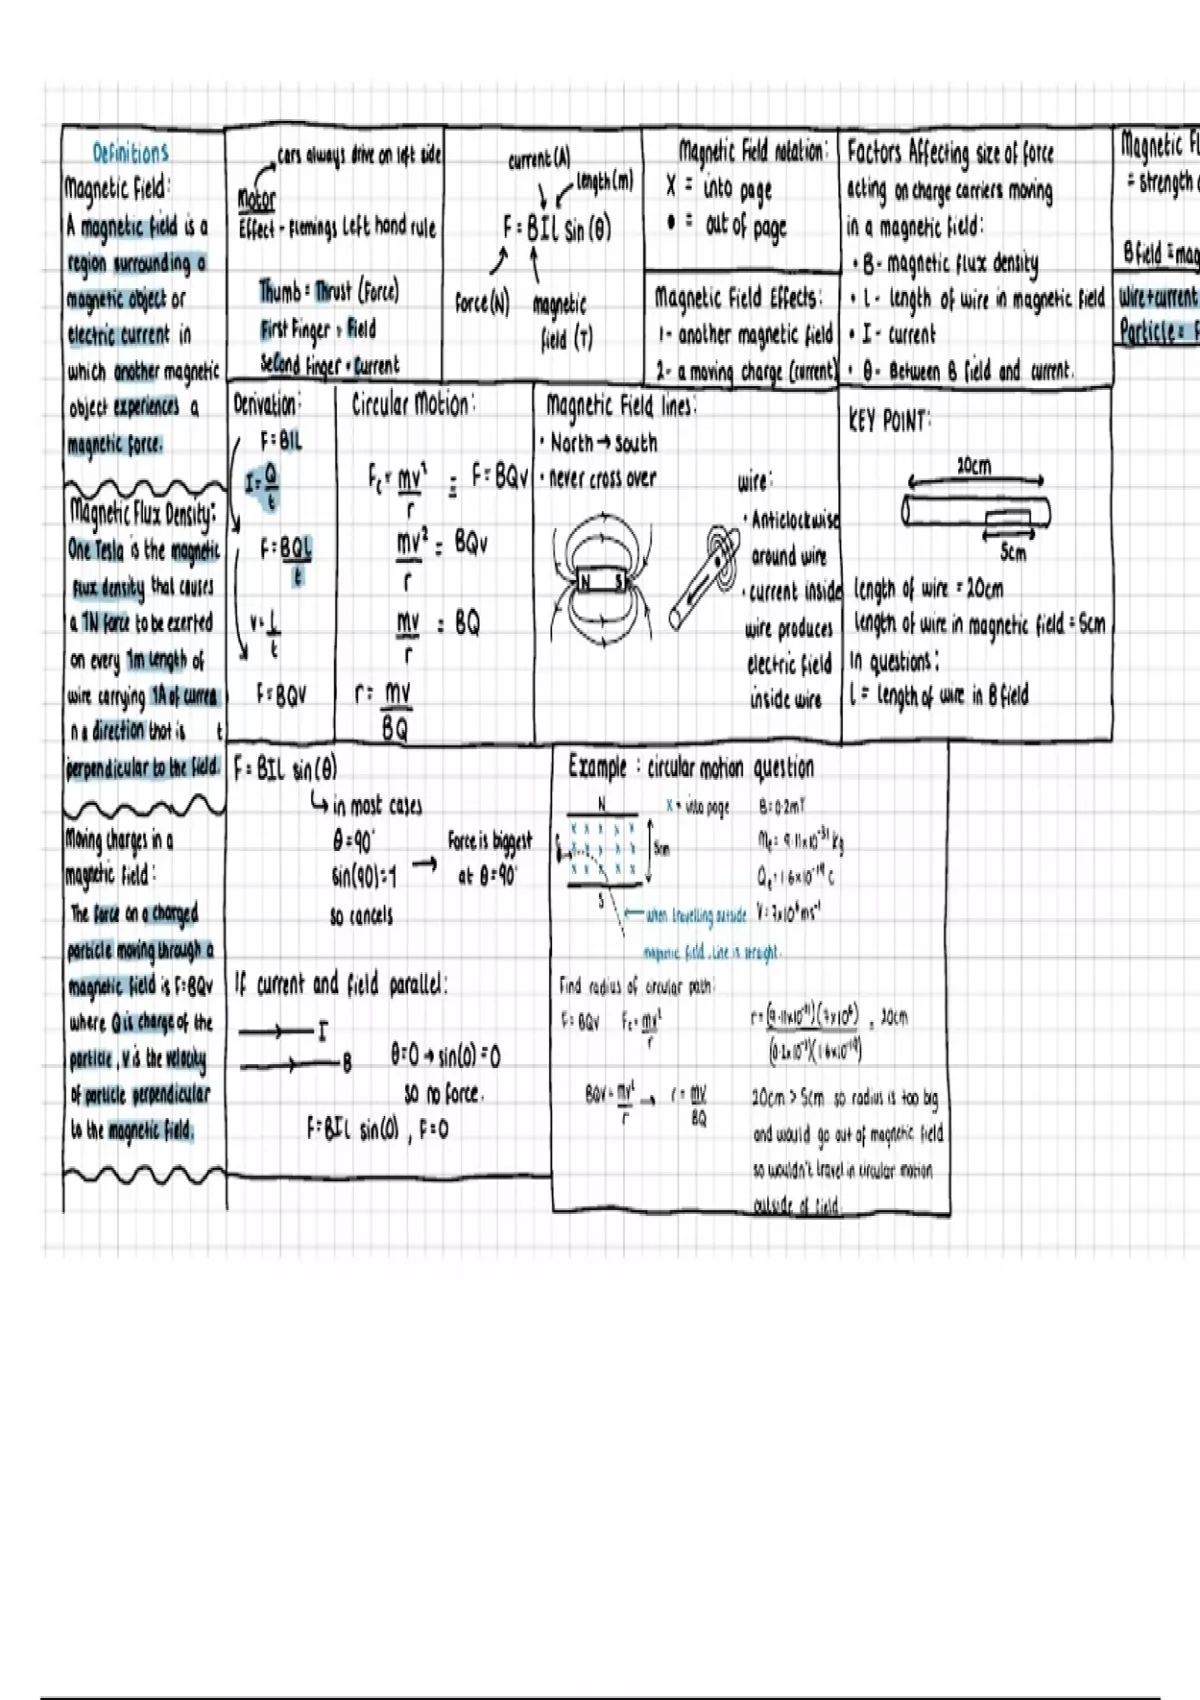 Definitions
Magnetic Field:
A magnetic field is a
region surrounding a
magnetic object or
electric current in
which another magnetic
object experiences a
magnetic force.
Magnetic Flux Density:
One Tesla is the magnetic
flux density that causes
a 1N force to be exerted
on every 1m length of
wire carrying 1A of curren
n a direction that is t
perpendicular to the field.
Moving charges in a
magnetic field:
The force on a charged
particle moving through a
magnetic field is F=BQv
where Q is charge of the
particle, V is the velocity
of particle perpendicular
to the magnetic field.
cars always drive on left side
Motor
Effect - Flemings Left hand rule
Thumb = Thrust (Force)
First Finger = Field
Second finger = Current
current (A)
length (m)
F = BIL sin (θ)
Force (N) magnetic
field (T)
Magnetic Field notation:
X = into page
• = out of page
Magnetic Field Effects:
1- another magnetic field
2- a moving charge (current)
Factors Affecting size of force
acting on charge carriers moving
in a magnetic field:
• B - magnetic flux density
• L - length of wire in magnetic field
• I - current
• θ - Between B field and current.
Magnetic Fl
= strength o
B field = mag
Wire + current
Particle =
Derivation:
F = BIL
I = Q
t
F = BQL
t
v = L
t
F = BQV
Circular Motion:
Fc = mv² = F = BQv
r
mv² = BQv
r
mv = BQ
r
r = mv
BQ
Magnetic Field lines:
• North → South
• never cross over
N S
wire:
• Anticlockwise
around wire
• current inside
wire produces
electric field
inside wire
KEY POINT:
20cm
5cm
Length of wire = 20cm
Length of wire in magnetic field = 5cm
In questions:
L = Length of wire in B field
F = BIL sin(θ)
↳ in most cases
θ = 90°
sin(90) = 1 → Force is biggest
at θ = 90°
so cancels
If current and field parallel:
I
B
θ = 0 → sin(0) = 0
so no force.
F = BIL sin(0) , F = 0
Example : circular motion question
N
x = into page
5cm
S
← when travelling outside
magnetic field, line is straight.
B = 0.2mT
Me = 9.11x10⁻³¹ kg
Qe = 1.6x10⁻¹⁹ C
V = 7x10⁶ ms⁻¹
Find radius of circular path:
F = BQV Fc = mv²
r
BQV = mv² → r = mv
r BQ
r = (9.11x10⁻³¹)(7x10⁶) = 20cm
(0.2x10⁻³)(1.6x10⁻¹⁹)
20cm > 5cm so radius is too big
and would go out of magnetic field
so wouldn't travel in circular motion
outside of field.